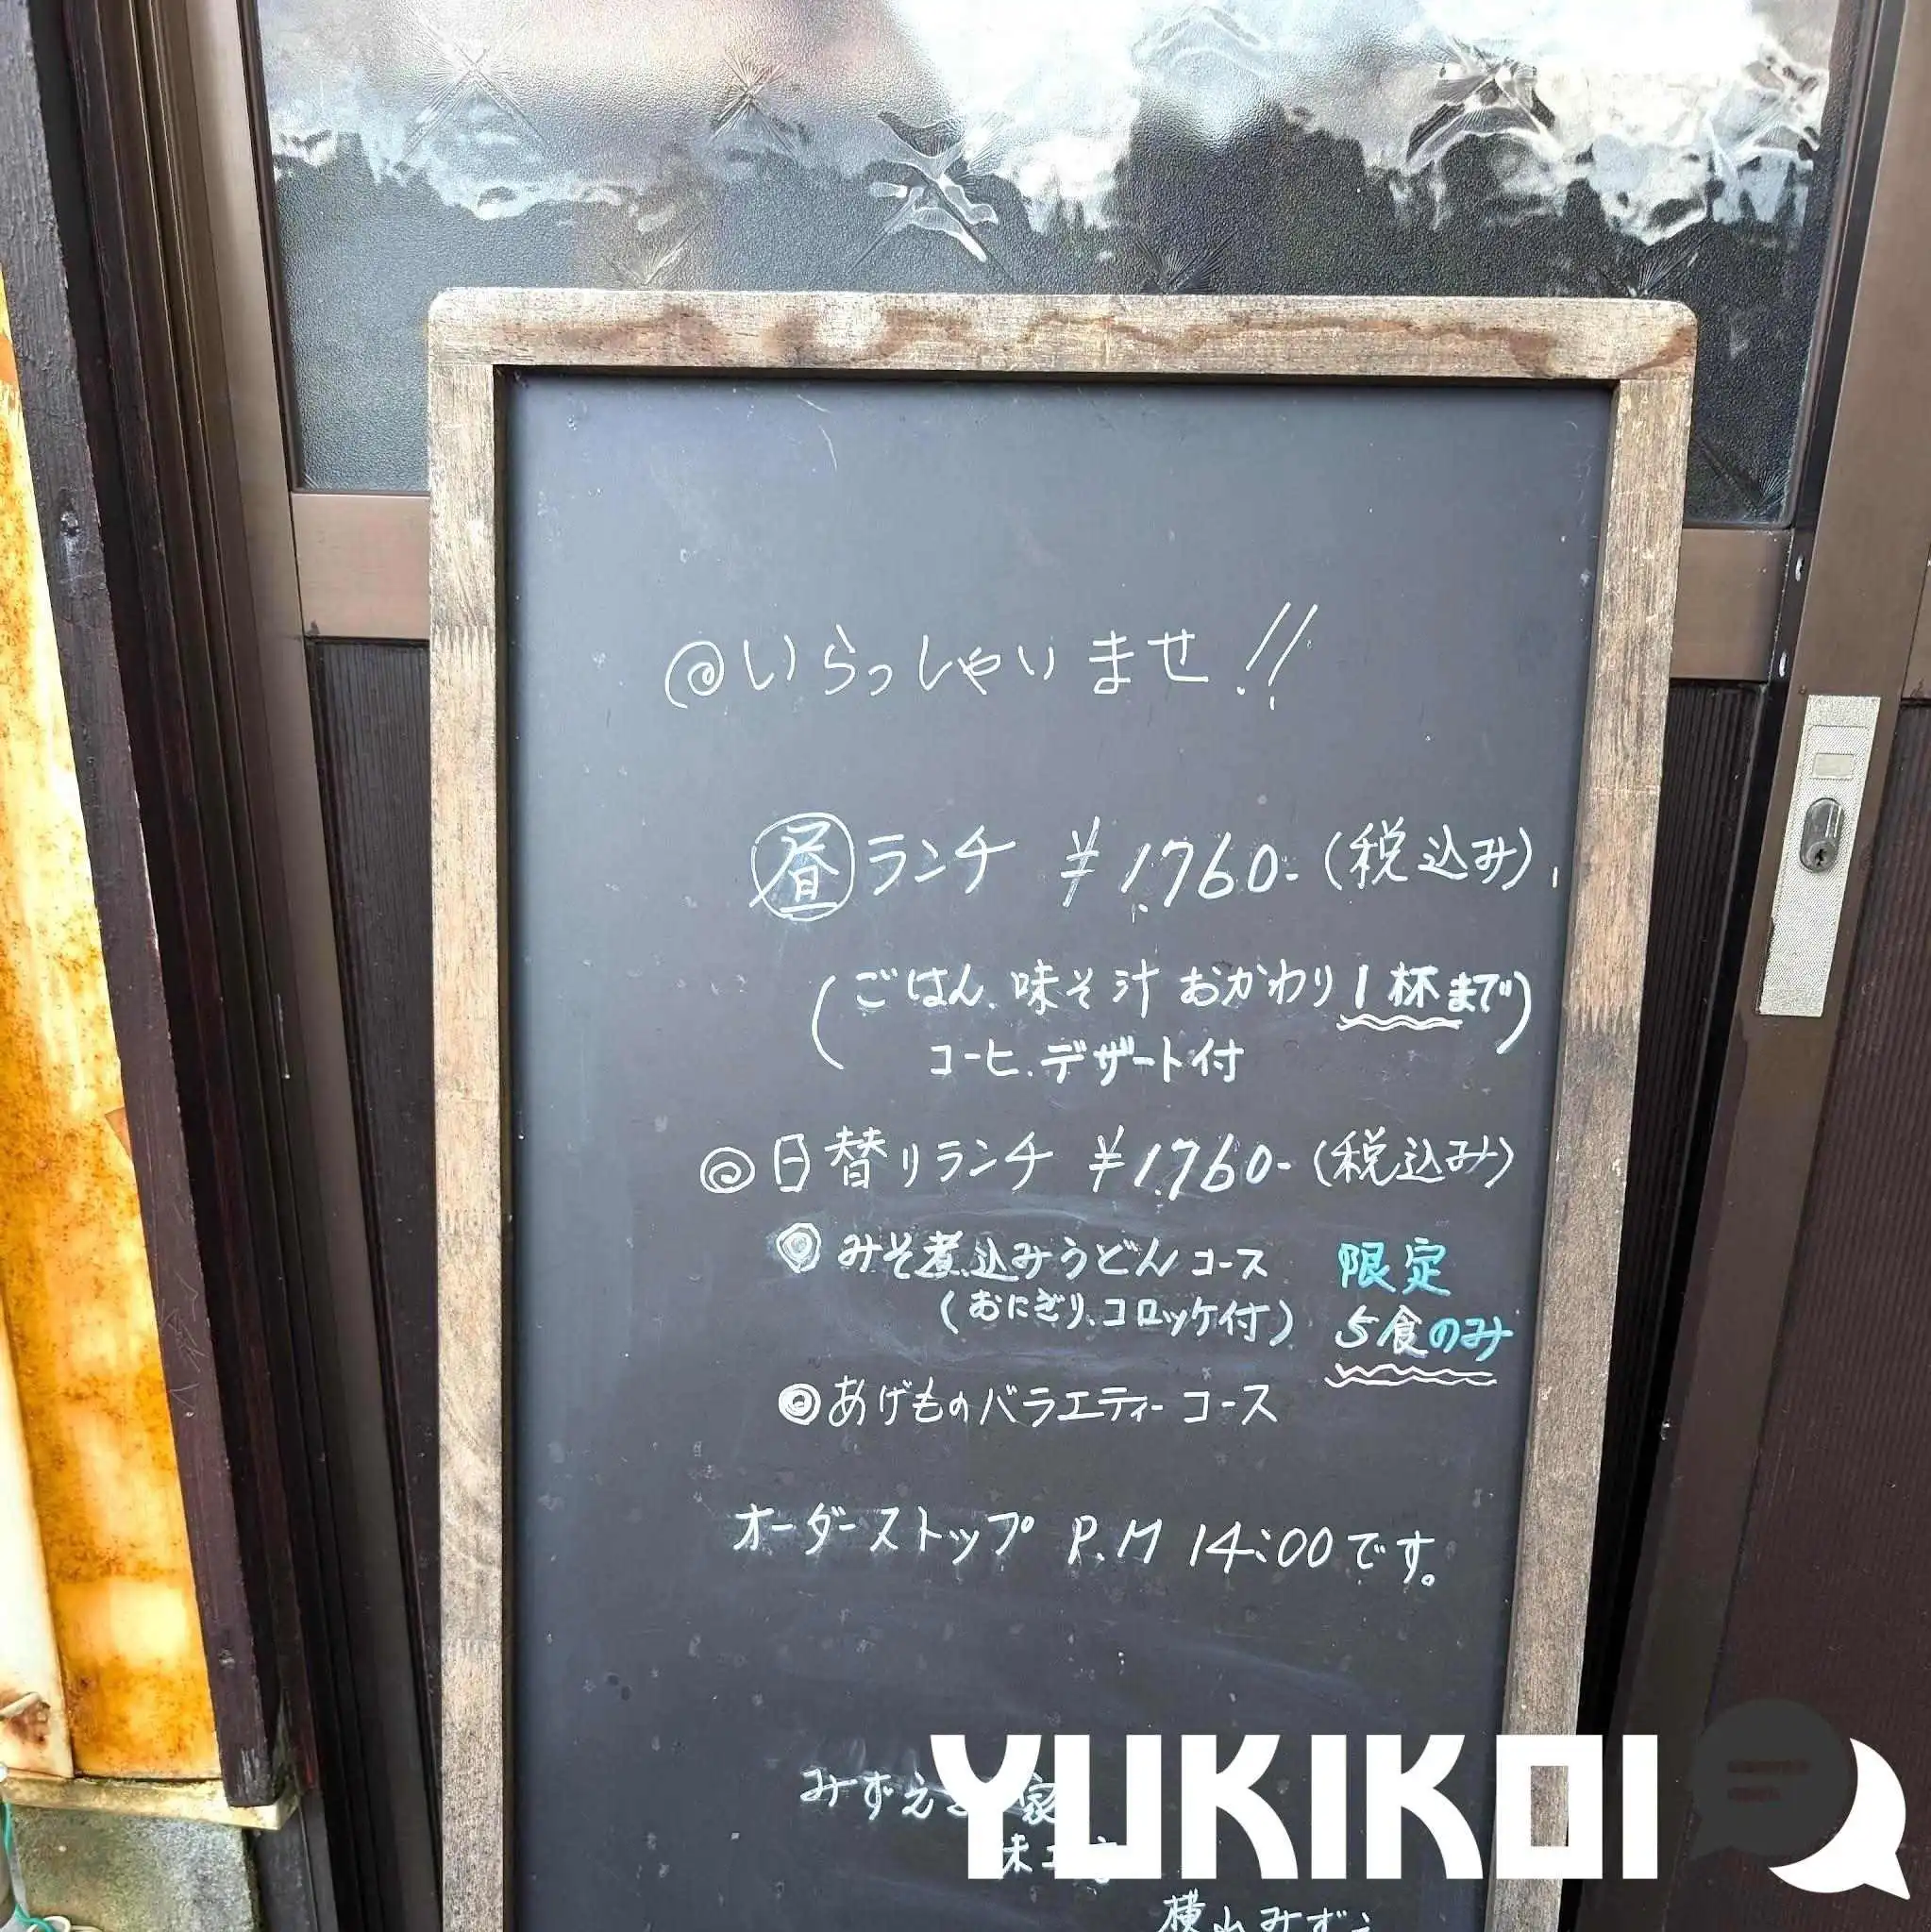 いらっしゃいませ!!
昼ランチ ¥1,760-(税込み)
(ごはん、味そ汁 おかわり1杯まで)
コーヒ、デザート付
日替りランチ ¥1,760-(税込み)
◎みそ煮込みうどんコース 限定
(おにぎり、コロッケ付) 5食のみ
◎あげものバラエティーコース
オーダーストップ P.M 14:00です。
みずえ
YUKIKOI
横山みずえ